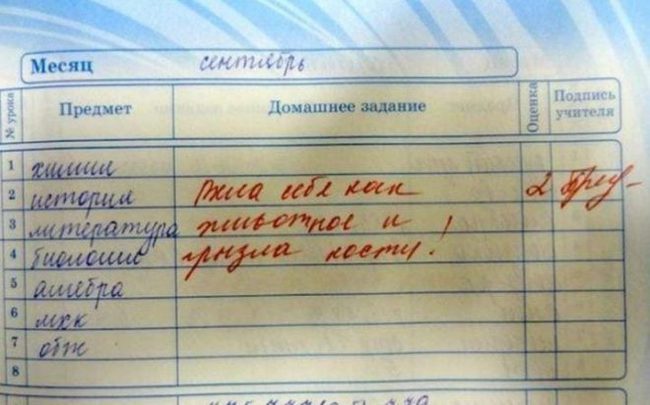 Месяц сентябрь
№ урока Предмет Домашнее задание Оценка Подпись учителя
1 химия
2 история Вела себя как 2
3 литература животное и
4 биология грызла кости!
5 алгебра
6 мхк
7 обж
8